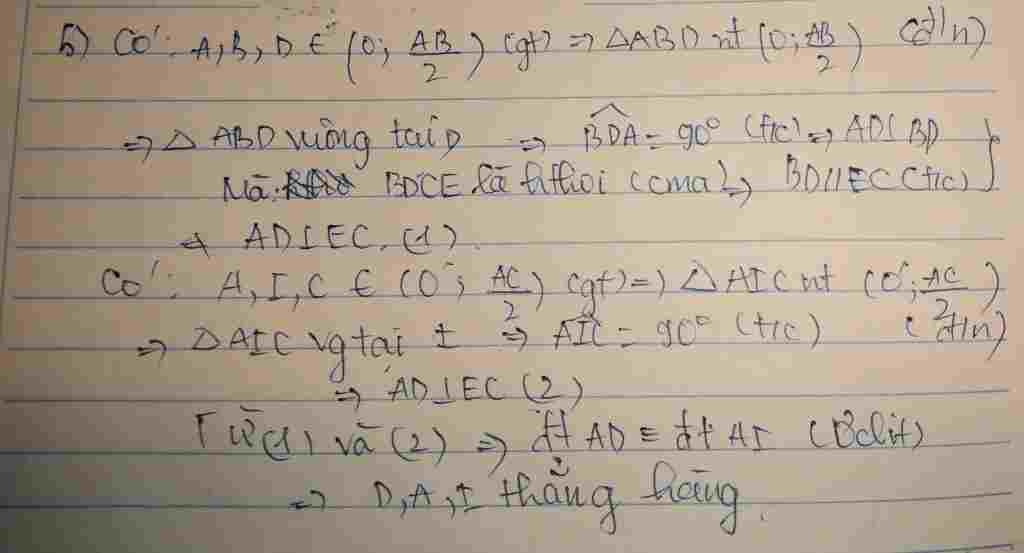 b) Có: A, B, D ∈ (O; AB/2) (gt) => △ABD nt (O; AB/2) (đ/n)
=> △ ABD vuông tại D => BDA = 90° (t/c) => AD⊥BD
Mà: BDCE là h thoi (cma) => BD//EC (t/c)
=> AD⊥EC. (1).
Có: A, I, C ∈ (O'; AC/2) (gt) => △AIC nt (O'; AC/2)
=> △AIC vg tại I => AIC = 90° (t/c) (đ/n)
=> AD⊥EC (2)
Từ (1) và (2) => đt AD ≡ đt AI (Ơclit)
=> D, A, I thẳng hàng.